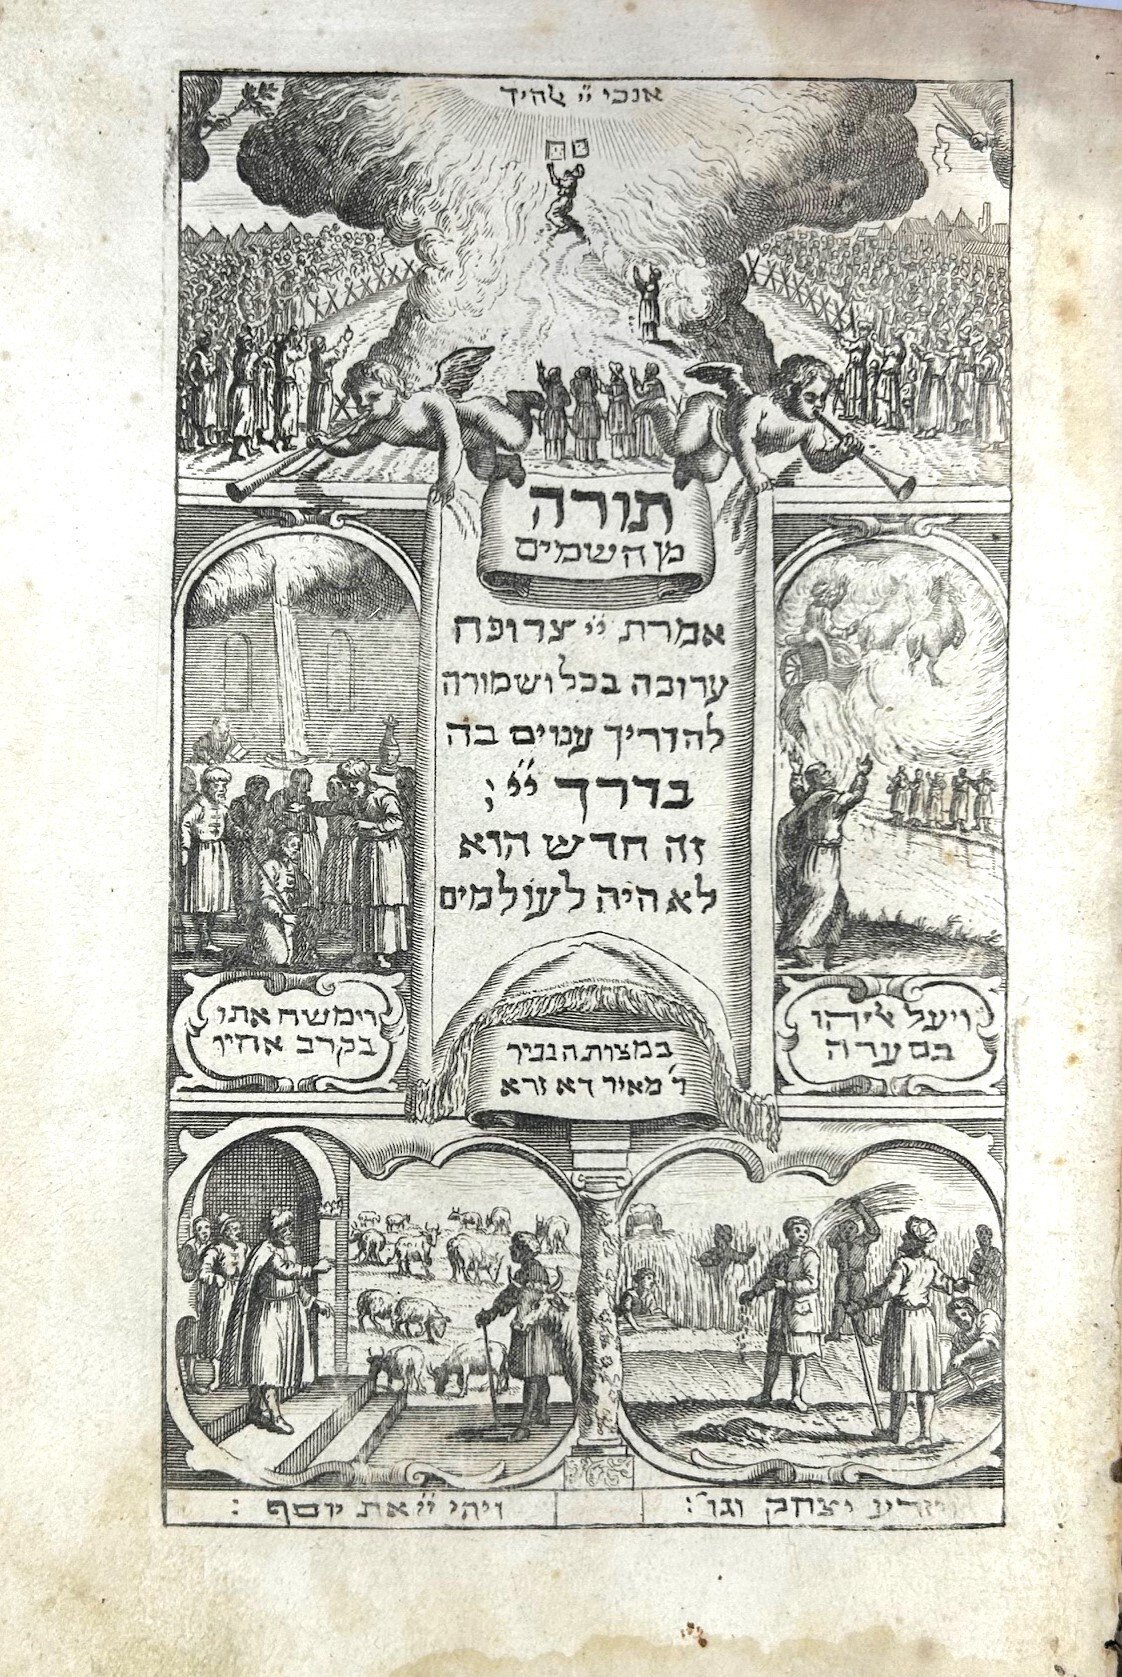 אנכי יי ﭏהיך
תורה
מן השמים
אמרת יי צרופה
ערוכה בכל ושמורה
להדריך ענוים בה
בדרך יי ;
זה חדש הוא
לא היה לעולמים
ויעל ﭏיהו
בסערה
וימשח אתו
בקרב אחיו
במצות הגביר
ר' מאיר דא זרא
ויזרע יצחק וגו' :
ויהי יי את יוסף :